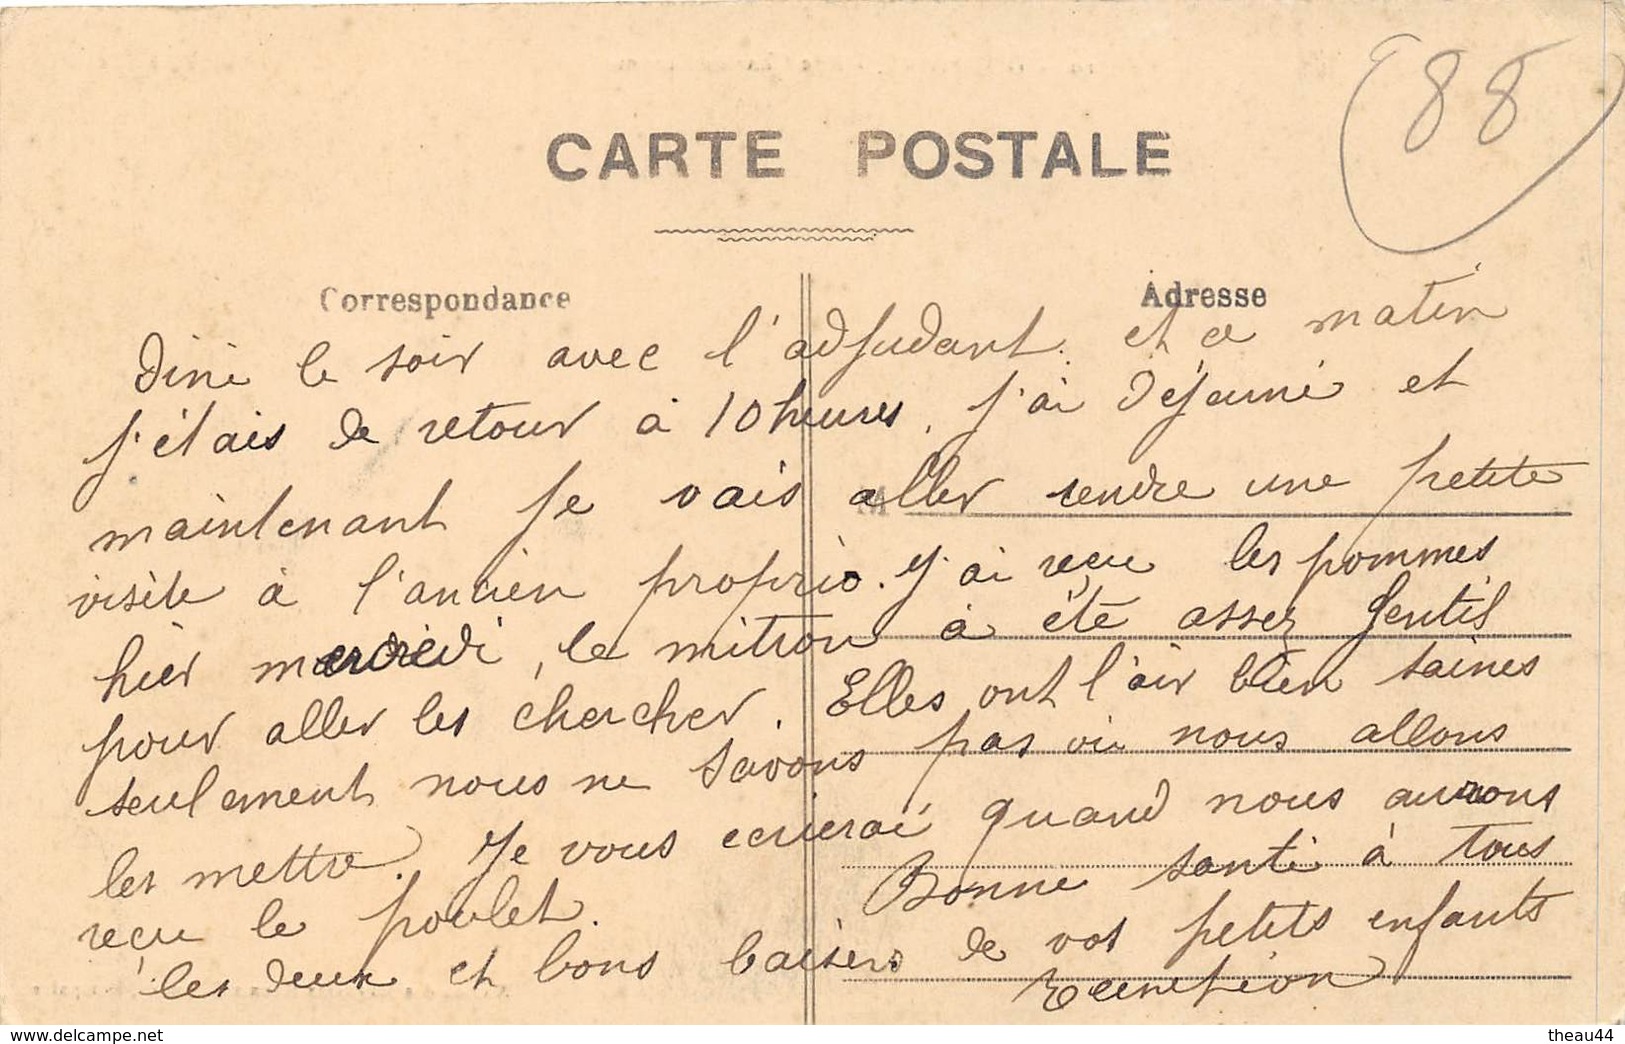 88
CARTE POSTALE
Correspondance
Adresse
diné le soir avec l'adjudant. et ce matin
j'étais de retour à 10 heures. j'ai déjeuné et
maintenant je vais aller rendre une petite
M
visite à l'ancien proprio. J'ai reçu les pommes
hier mercredi, le mitron à été assez gentil
pour aller les chercher. Elles ont l'air bien saines
seulement nous ne savons pas où nous allons
les mettre. Je vous écrierai quand nous aurons
reçu le poulet. Bonne santé à tous
les deux et bons baisers de vos petits enfants
delcampe.net
theau44